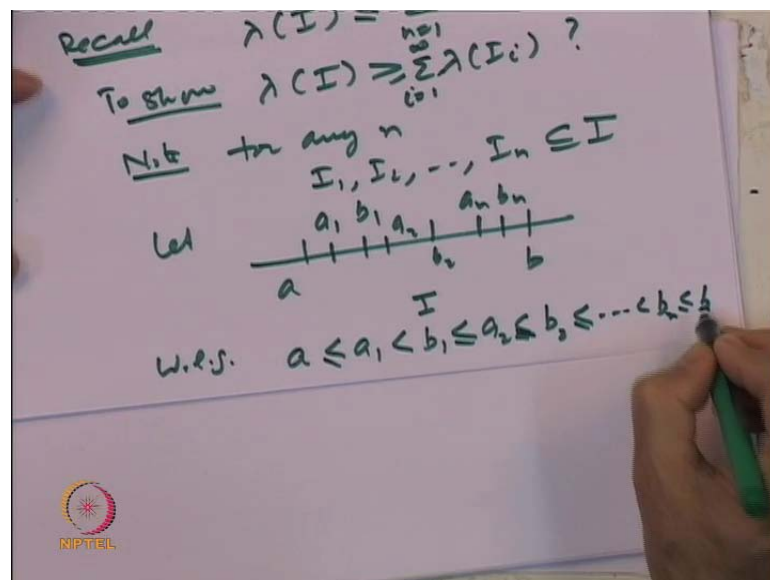 Recall λ(I) ≤ n=1
To show λ(I) ≥ ∞ Σ i=1 λ(Ii) ?
Note for any n
I1, I2, ..., In ⊆ I
a1 b1 a2 an bn
Let
a b2 b
I
W.l.g. a ≤ a1 < b1 ≤ a2 ≤ b2 ≤ ... < bn ≤ b
NPTEL